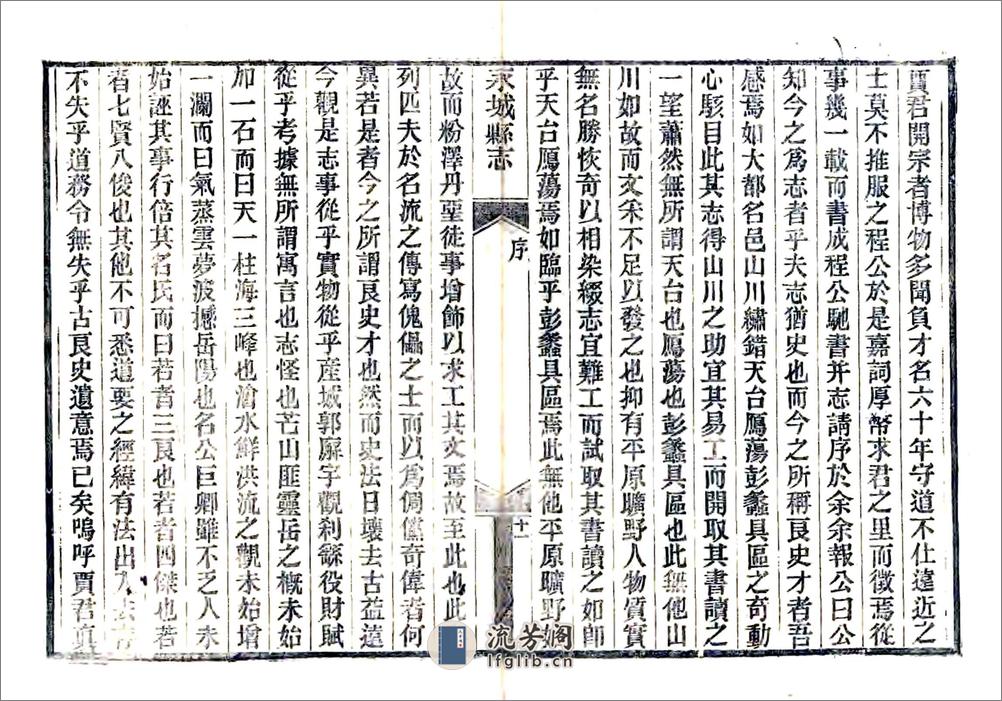 賈君開宗者博物多聞負才名六十年守道不仕遠近之
士莫不推服之程公於是嘉詞厚幣求君之里而徵焉從
事幾一載而書成程公馳書并志請序於余余報公曰公
知今之為志者乎夫志猶史也而今之所稱良史才者吾
感焉如大都名邑山川繡錯天台鴈蕩彭蠡具區之奇動
心駭目此其志得山川之助宜其易工而開取其書讀之
一望蕭然無所謂天台也鴈蕩也彭蠡具區也此無他山
川如故而文采不足以發之也抑有平原曠野人物質實
無名勝恢奇以相染綴志宜難工而試取其書讀之如卽
乎天台鴈蕩焉如臨乎彭蠡具區焉此無他平原曠野如
永城縣志
序
十一
故而粉澤丹堊徒事增飾以求工其文焉故至此也此
列匹夫於名流之傳寫傀儡之士而以為倜儻奇偉者何
異若是者今之所謂良史才也然而史法日壞去古益遠
今觀是志事從乎實物從乎產城郭廨宇觀利繇役財賦
從乎考據無所謂寓言也志怪也芒山匪靈岳之概未始
加一石而曰天一柱海三峰也滄水鮮洪流之觀未始增
一瀾而曰氣蒸雲夢波撼岳陽也名公巨卿雖不乏人未
始誣其事行倍其名氏而曰若者三良也若者四傑也若
者七賢八俊也其他不可悉道要之經緯有法出入
不失乎道務令無失乎古良史遺意焉已矣嗚呼賈君真
流芳閣
lfglib.cn